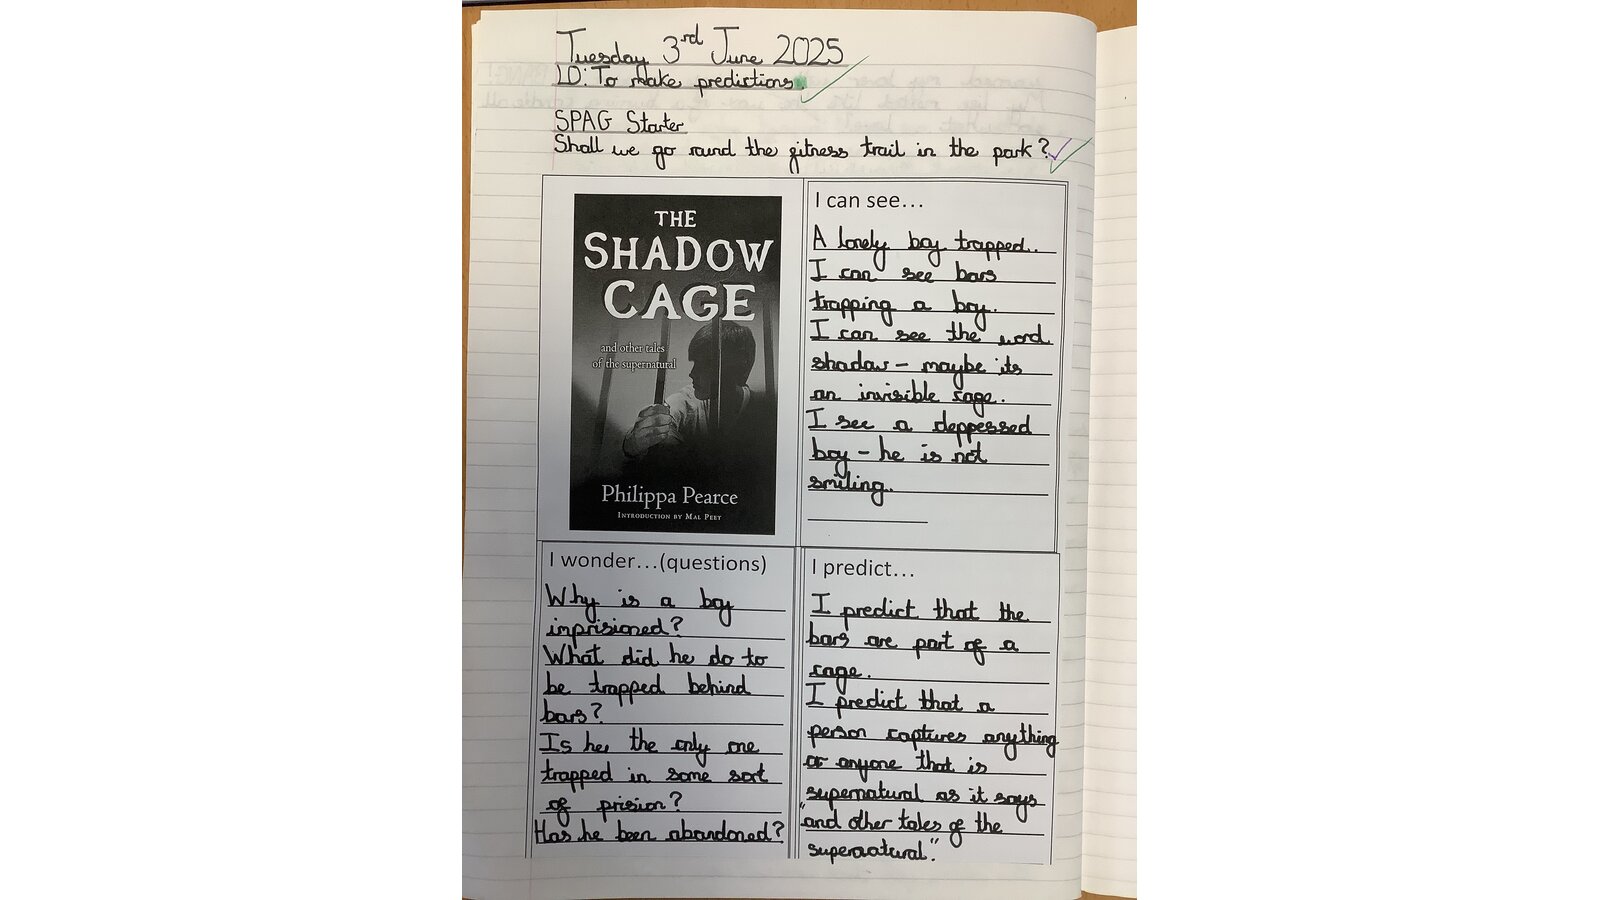 Tuesday 3rd June 2025
LO: To make predictions.
SPAG Starter
Shall we go round the fitness trail in the park?
THE
SHADOW
CAGE
and other tales
of the supernatural
Philippa Pearce
INTRODUCTION BY MAL PEET
I can see…
A lonely boy trapped..
I can see bars
trapping a boy.
I can see the word
shadow - maybe its
an invisible cage.
I see a deppessed
boy - he is not
smiling.
I wonder…(questions)
Why is a boy
imprisioned?
What did he do to
be trapped behind
bars?
Is he, the only one
trapped in some sort
of prision?
Has he been abandoned?
I predict…
I predict that the
bars are part of a
cage.
I predict that a
person captures anything
or anyone that is
supernatural as it says
"and other tales of the
supernatural."